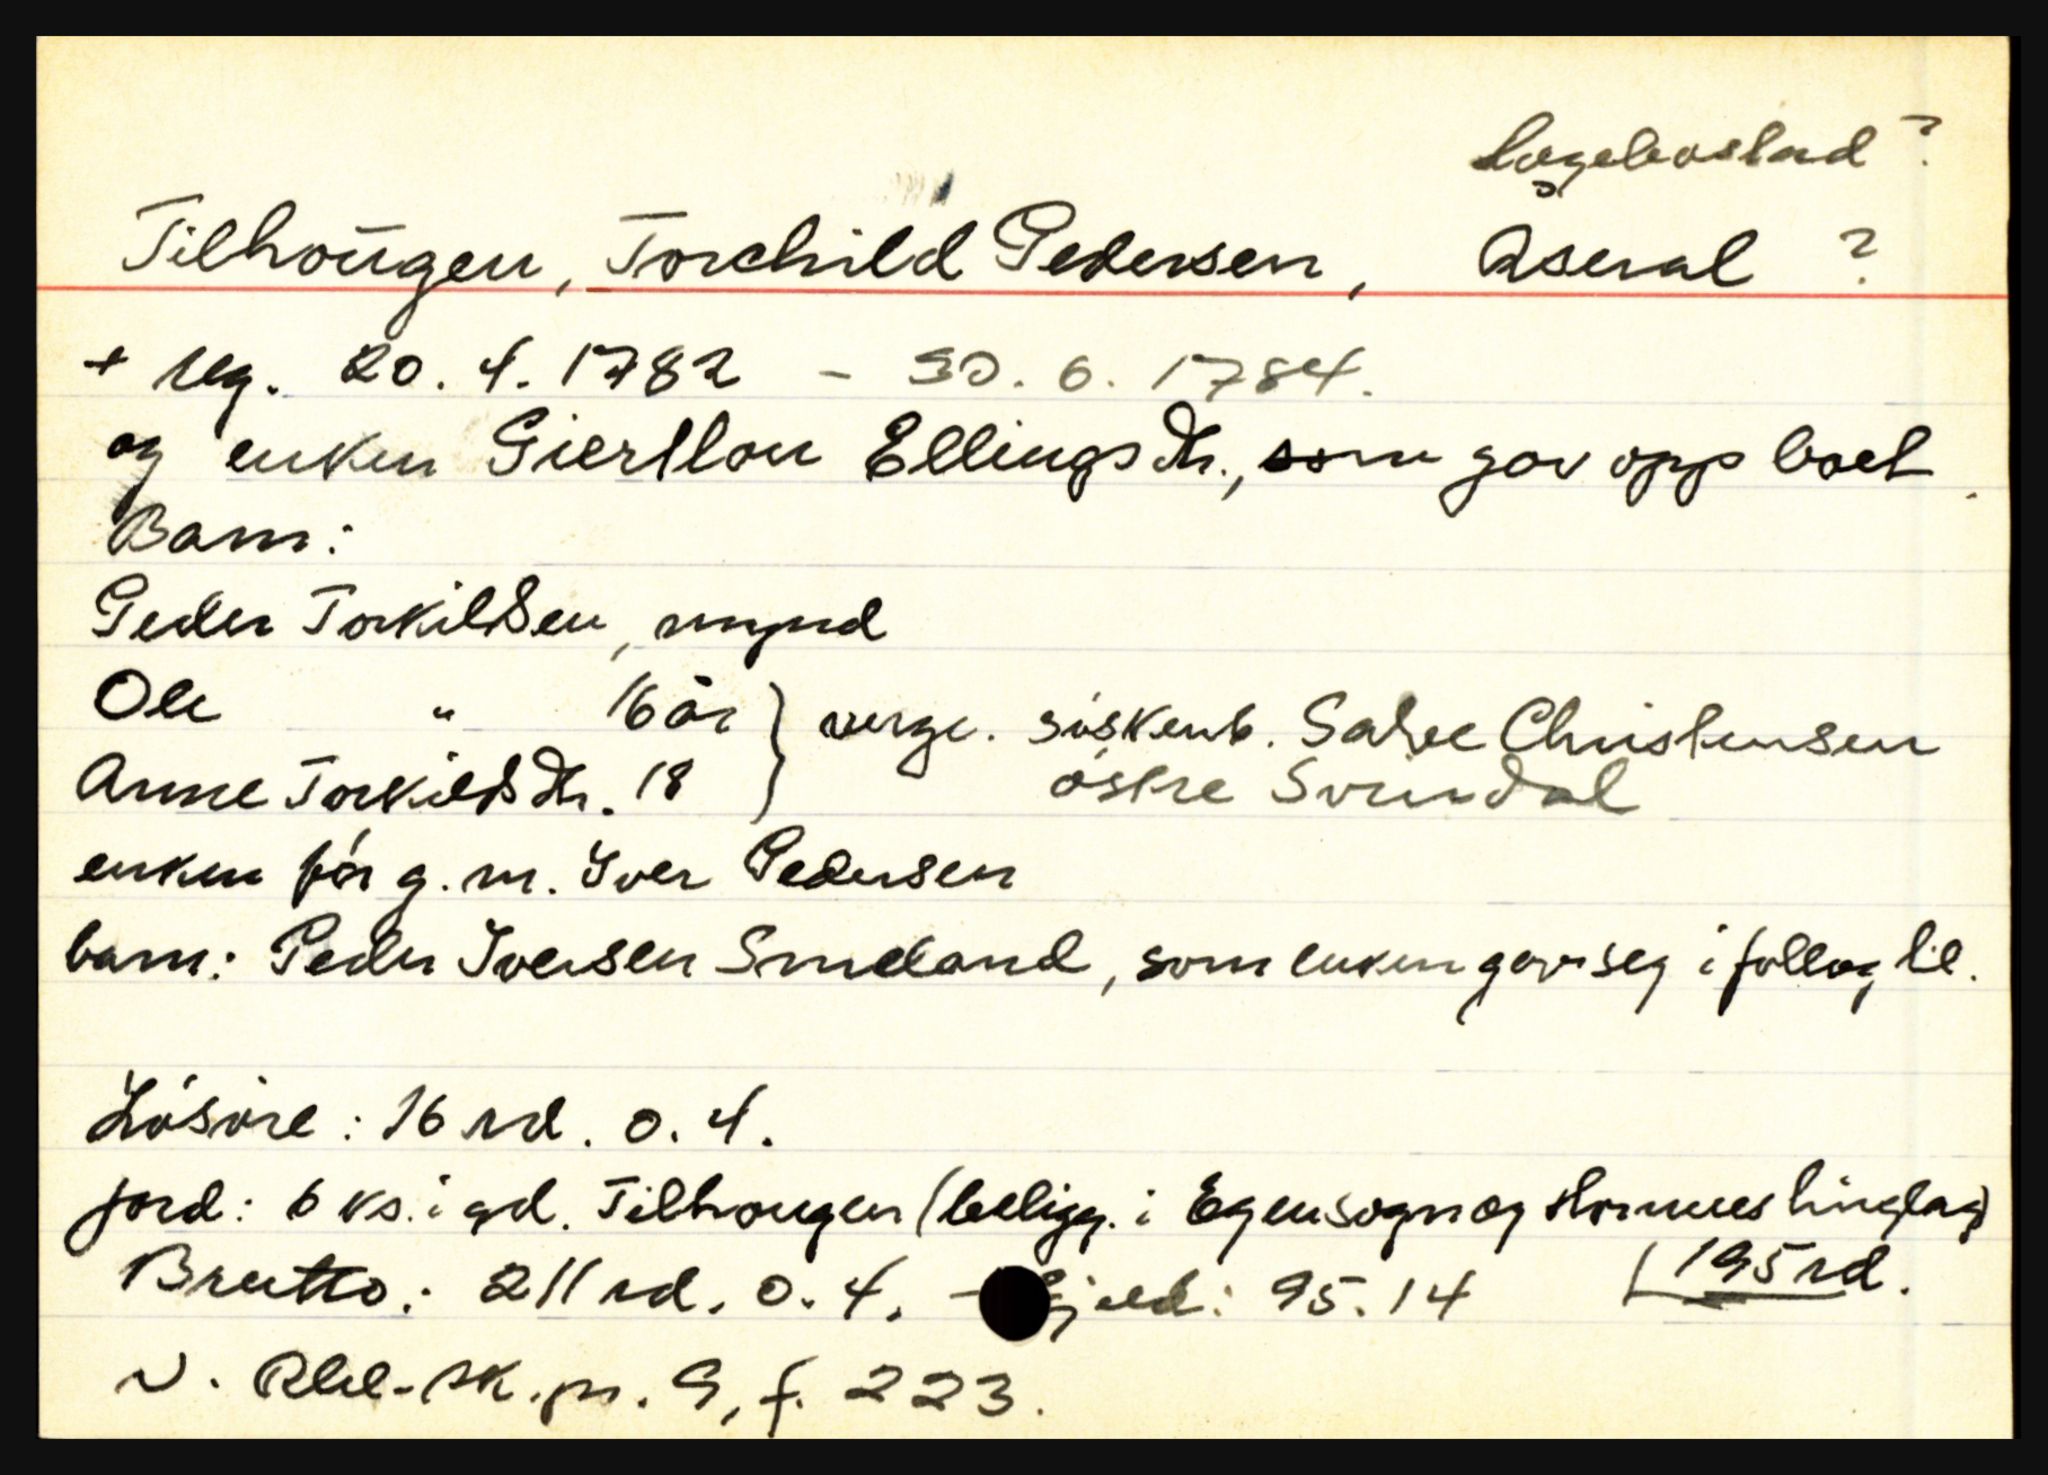 Lögebostad ?
Tilhoŭgen, Torchild Pedersen, Åseral ?
+ reg. 20. 4. 1782 - 30. 6. 1784.
og enken Giertlou Ellingsdtr., som gav opp boet.
Barn:
Peder Torkildsen, mynd
Ole " 16 år } verge. söskenb. Salve Christensen
Anne Torkildsdtr. 18 } östre Svindal
enken för g. m. Iver Pedersen
barn: Peder Iversen Smeland, som enken gav seg i follog til.
Lösöre: 16 rd. 0. 4.
jord: 6 ks. i gd. Tilhougen (beligg. i Egensogn og Hornnes tinglag)
Brutto: 211 rd. 0. 4. - Gjeld: 95. 14 195 rd.
N. Rbl-sk.pr. 9, f. 223.